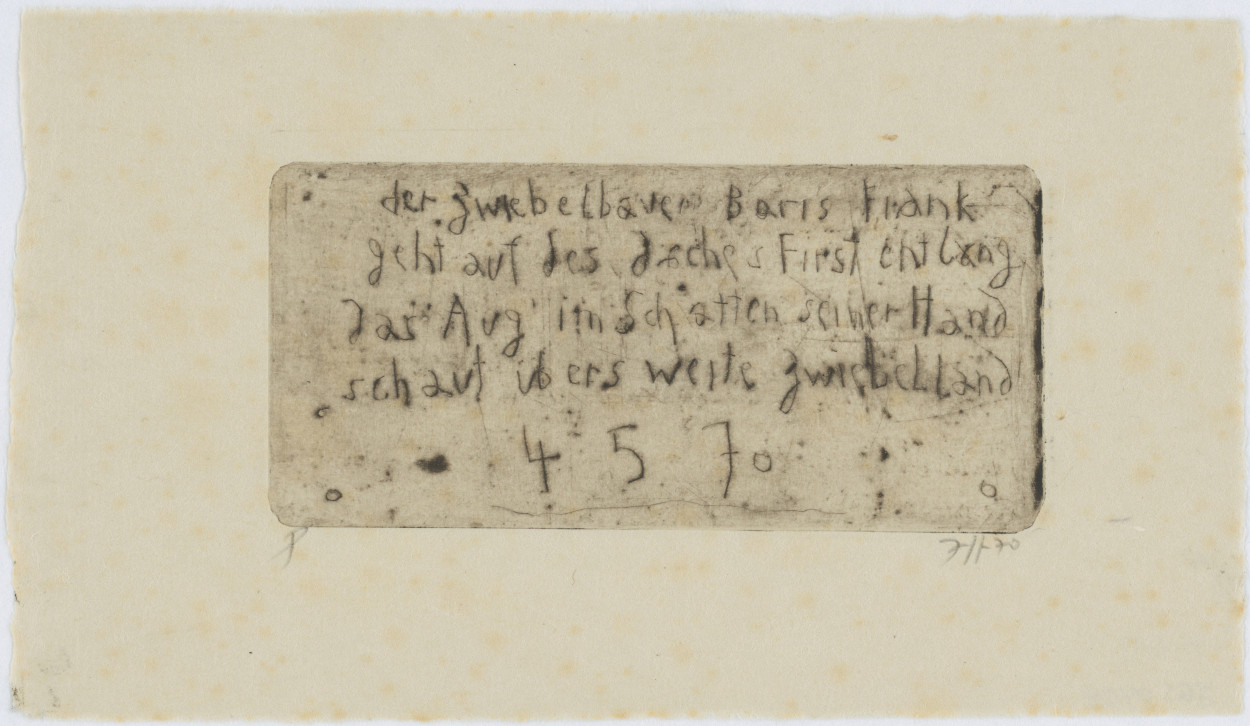 der zwiebelbauer Boris Frank
geht auf des daches First entlang
das Aug im Schatten seiner Hand
schaut übers weite zwiebelland
4 5 70